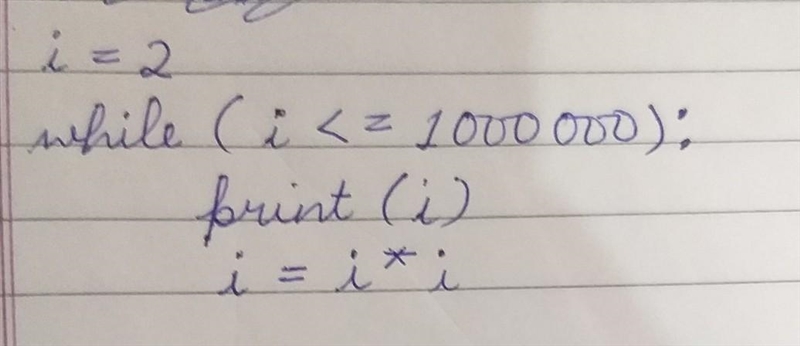 i = 2
while (i <= 1000000):
print (i)
i = i * i